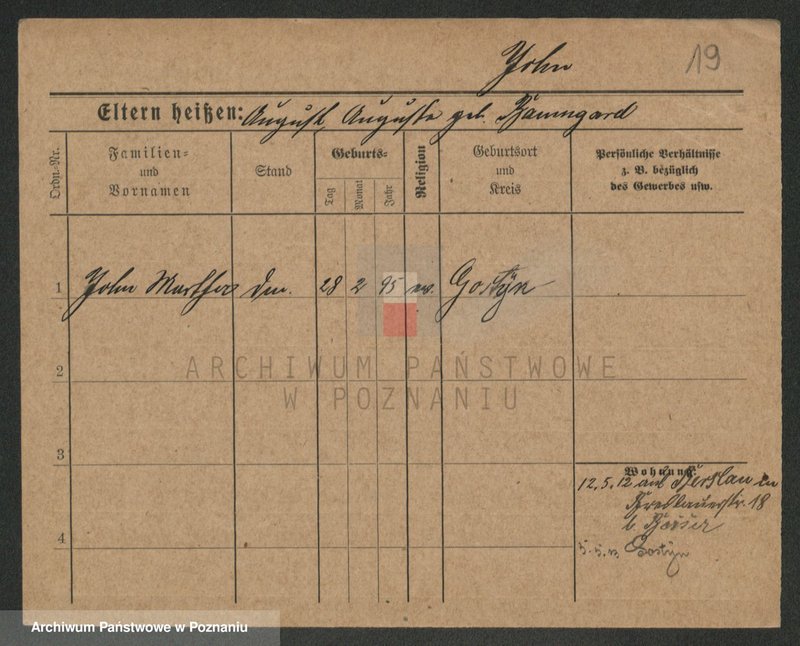 John 19
Eltern heißen: August, Auguste geb. Baumgard
Ordn.-Nr.
Familien-
und
Vornamen
Stand
Geburts-
Tag
Monat
Jahr
Religion
Geburtsort
und
Kreis
Persönliche Verhältnisse
z. B. bezüglich
des Gewerbes usw.
1 John Martha 28 2 95 ev. Gostyn
2
ARCHIWUM PAŃSTWOWE
W POZNANIU
3
Wohnung:
12.5.12 aus
18
b.
4
5.5.13 Gostyn
Archiwum Państwowe w Poznaniu